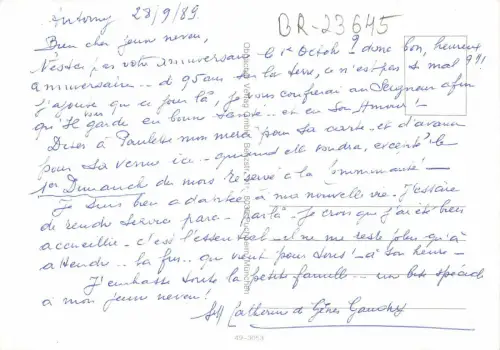 Antony 28/9/89.
BR-23645
Bien cher jeune neveu,
N'est-ce pas votre anniversaire le 1er Octobre? donc bon, heureux
anniversaire... 95 ans sur la terre, ce n'est pas si mal!
j'ajoute que ce jour là, je vous confierai au Seigneur afin
qu'Il vous garde en bonne santé.. et en Son Amour!
Dites à Paulette mon merci pour sa carte.. et d'avance
pour sa venue ici.. quand elle voudra, excepté le
1er Dimanche du mois réservé à la Communauté
Je suis bien adaptée à ma nouvelle vie. J'essaie
de rendre service par ci - par là. Je crois que j'ai été bien
accueillie - c'est l'essentiel - il ne me reste plus qu'à
attendre.. la fin.. qui vient pour tous! - à son heure -
J'embrasse toute la petite famille.. un bis spécial
à mon jeune neveu!
Catherine de Gênes Gaudry
49-3053